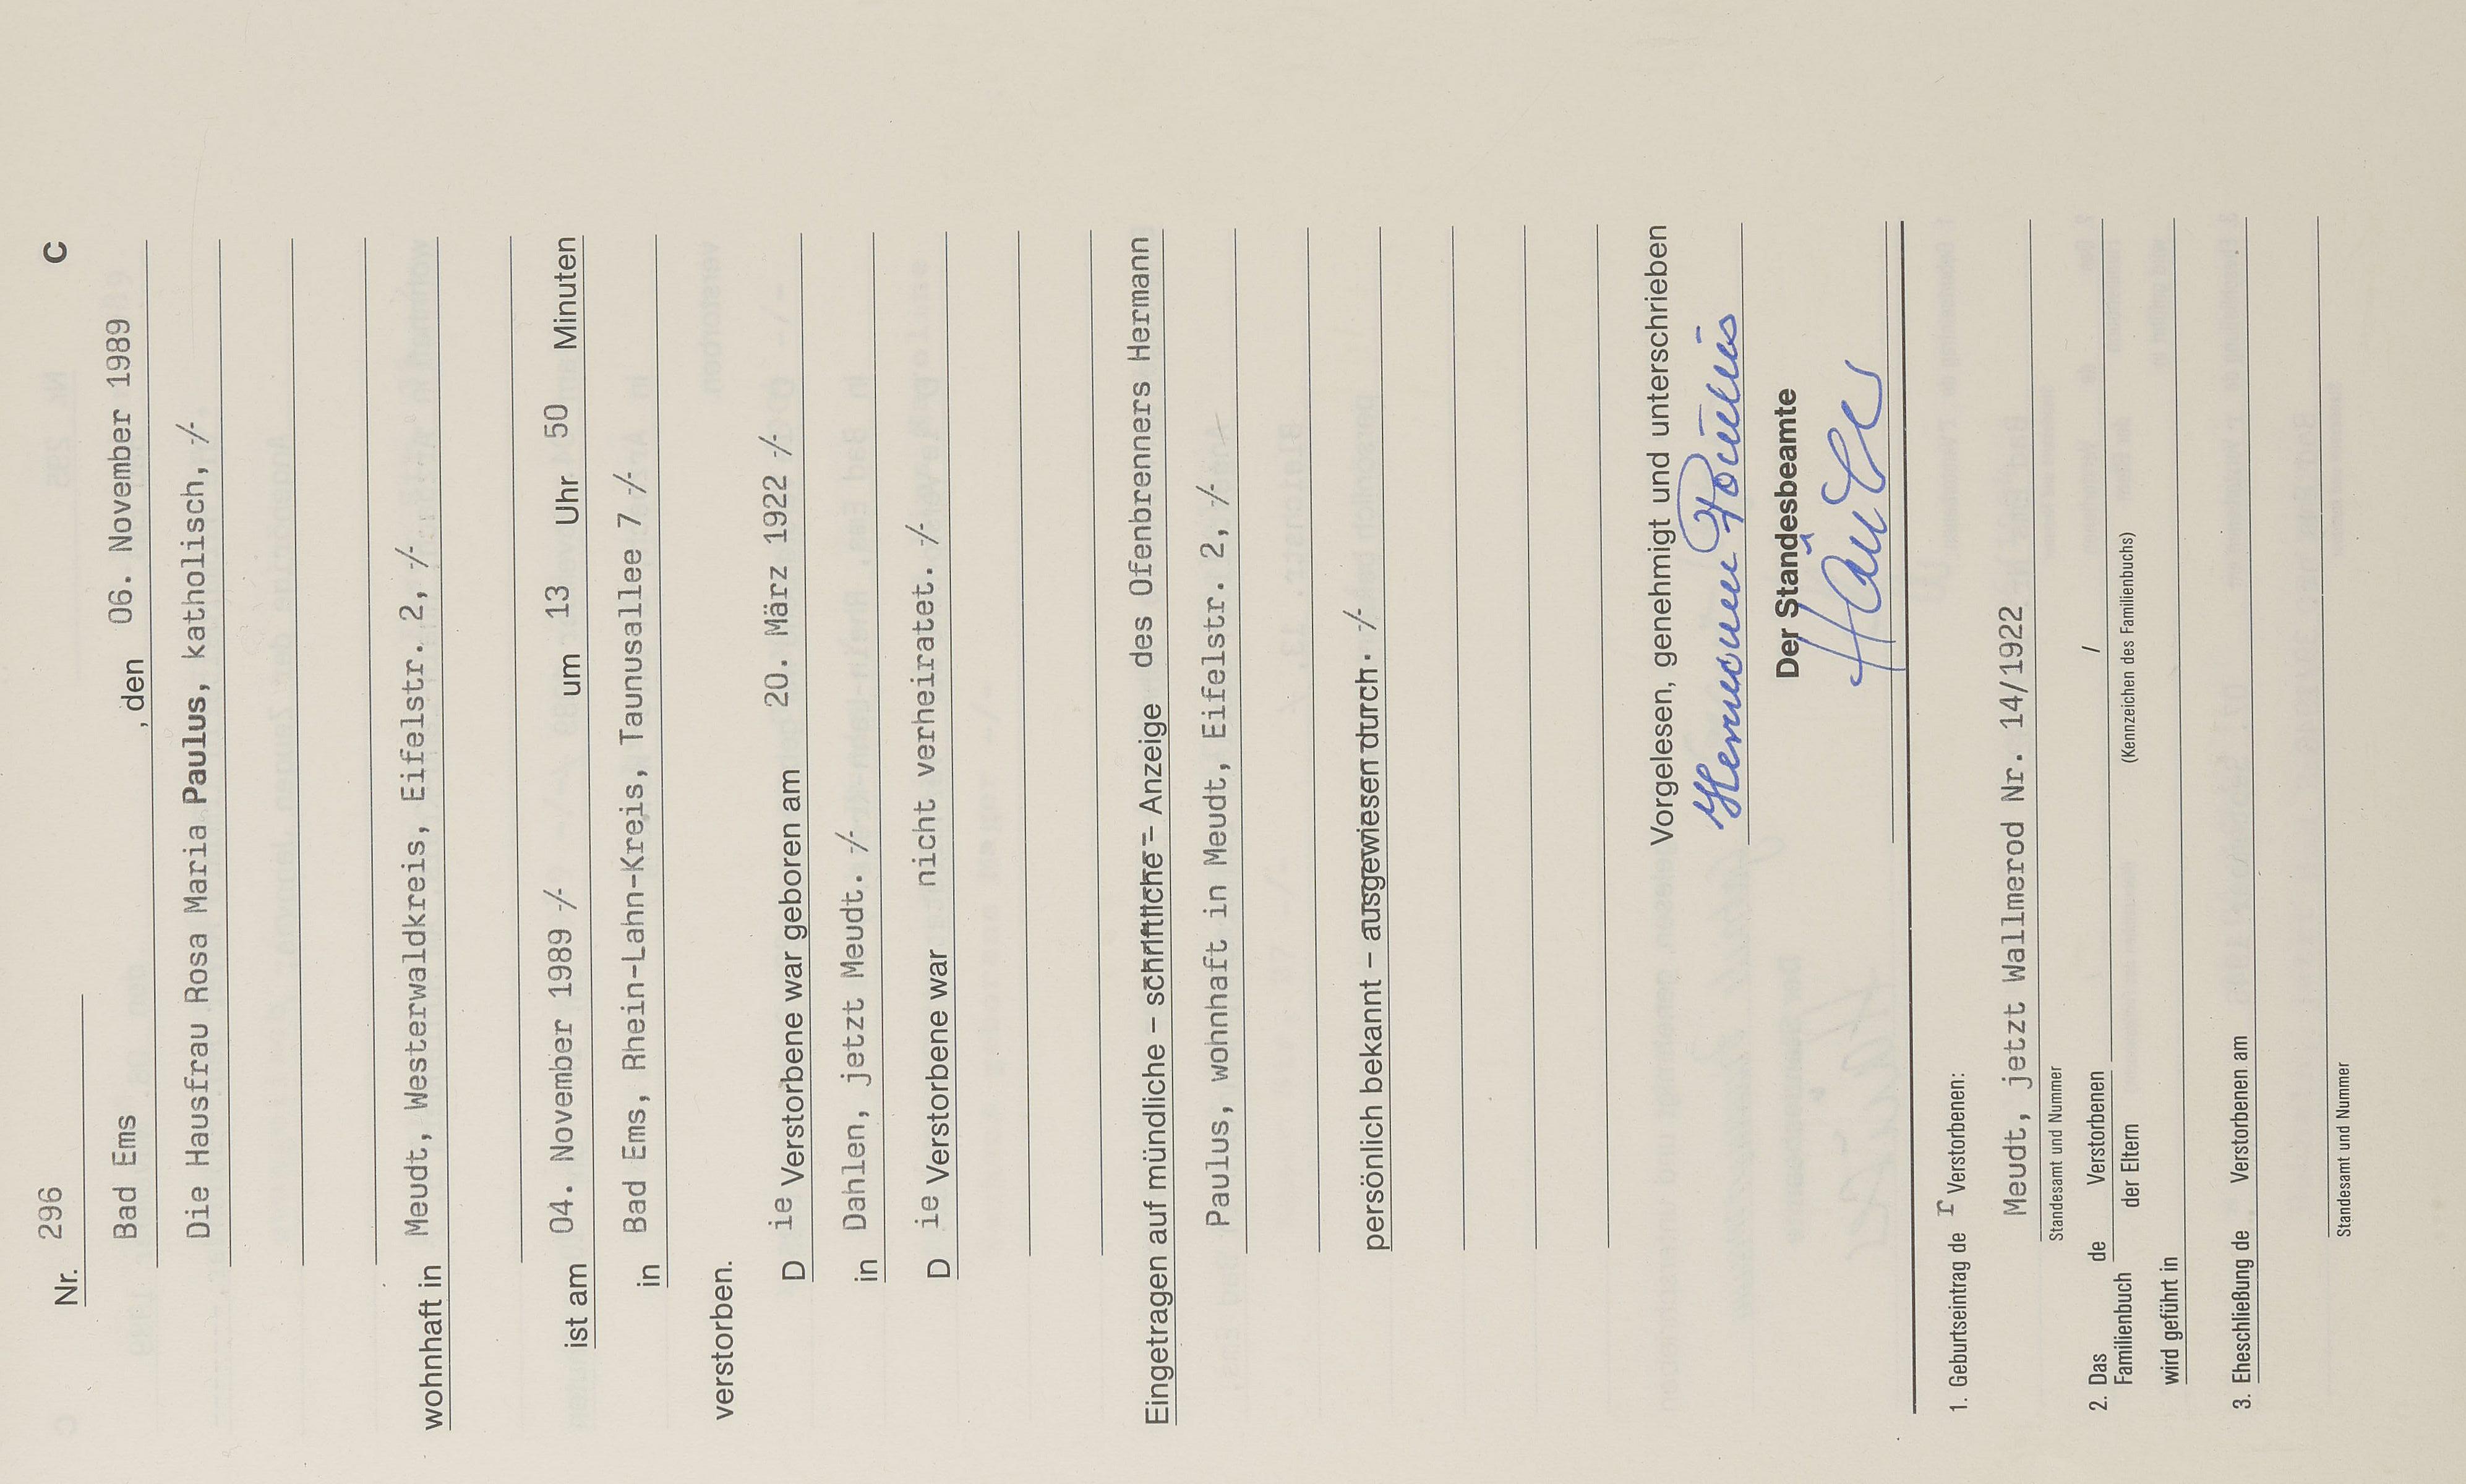 C
Nr. 296
Bad Ems , den 06. November 1989
Die Hausfrau Rosa Maria Paulus, katholisch,-/-
wohnhaft in Meudt, Westerwaldkreis, Eifelstr. 2, -/-
ist am 04. November 1989 -/- um 13 Uhr 50 Minuten
in Bad Ems, Rhein-Lahn-Kreis, Taunusallee 7 -/-
verstorben.
D ie Verstorbene war geboren am 20. März 1922 -/-
in Dahlen, jetzt Meudt. -/-
D ie Verstorbene war nicht verheiratet. -/-
Eingetragen auf mündliche – schriftliche – Anzeige des Ofenbrenners Hermann
Paulus, wohnhaft in Meudt, Eifelstr. 2, -/-
persönlich bekannt – ausgewiesen durch. -/-
Vorgelesen, genehmigt und unterschrieben
Hermann Paulus
Der Standesbeamte
1. Geburtseintrag de r Verstorbenen:
Meudt, jetzt Wallmerod Nr. 14/1922
Standesamt und Nummer
2. Das Familienbuch de Verstorbenen /
der Eltern (Kennzeichen des Familienbuchs)
wird geführt in
3. Eheschließung de Verstorbenen am
Standesamt und Nummer